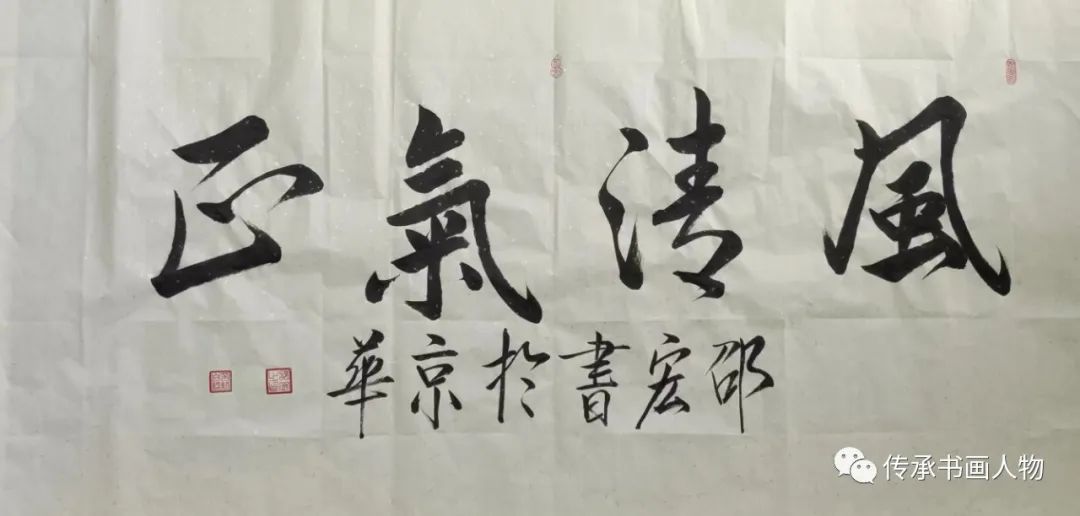 風清氣正
邵宏書於京華
传承书画人物